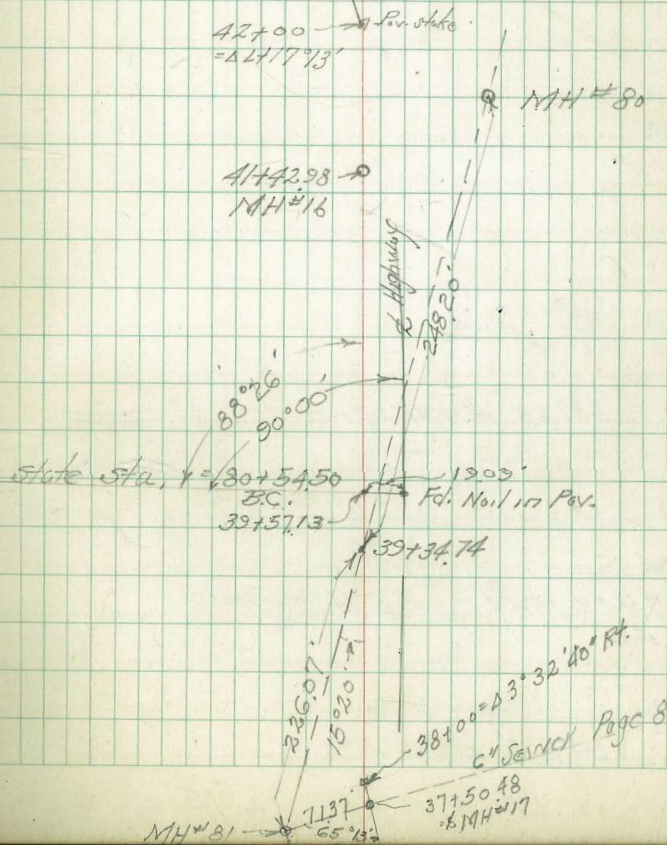 42+00
Pav. stake
=Δ L+17°13'
MH #80
41+42.98
MH #16
℄ Highway
248.20'
88°26'
90°00'
State Sta. = 80+54.50
19.09'
B.C.
Fd. Nail in Pav.
39+57.13
39+34.74
226.07'
15°20'
38+00=Δ3°32'40" Rt.
6" Sewer Page 8
71.37
37+50.48
MH #17
MH #81
65°13'